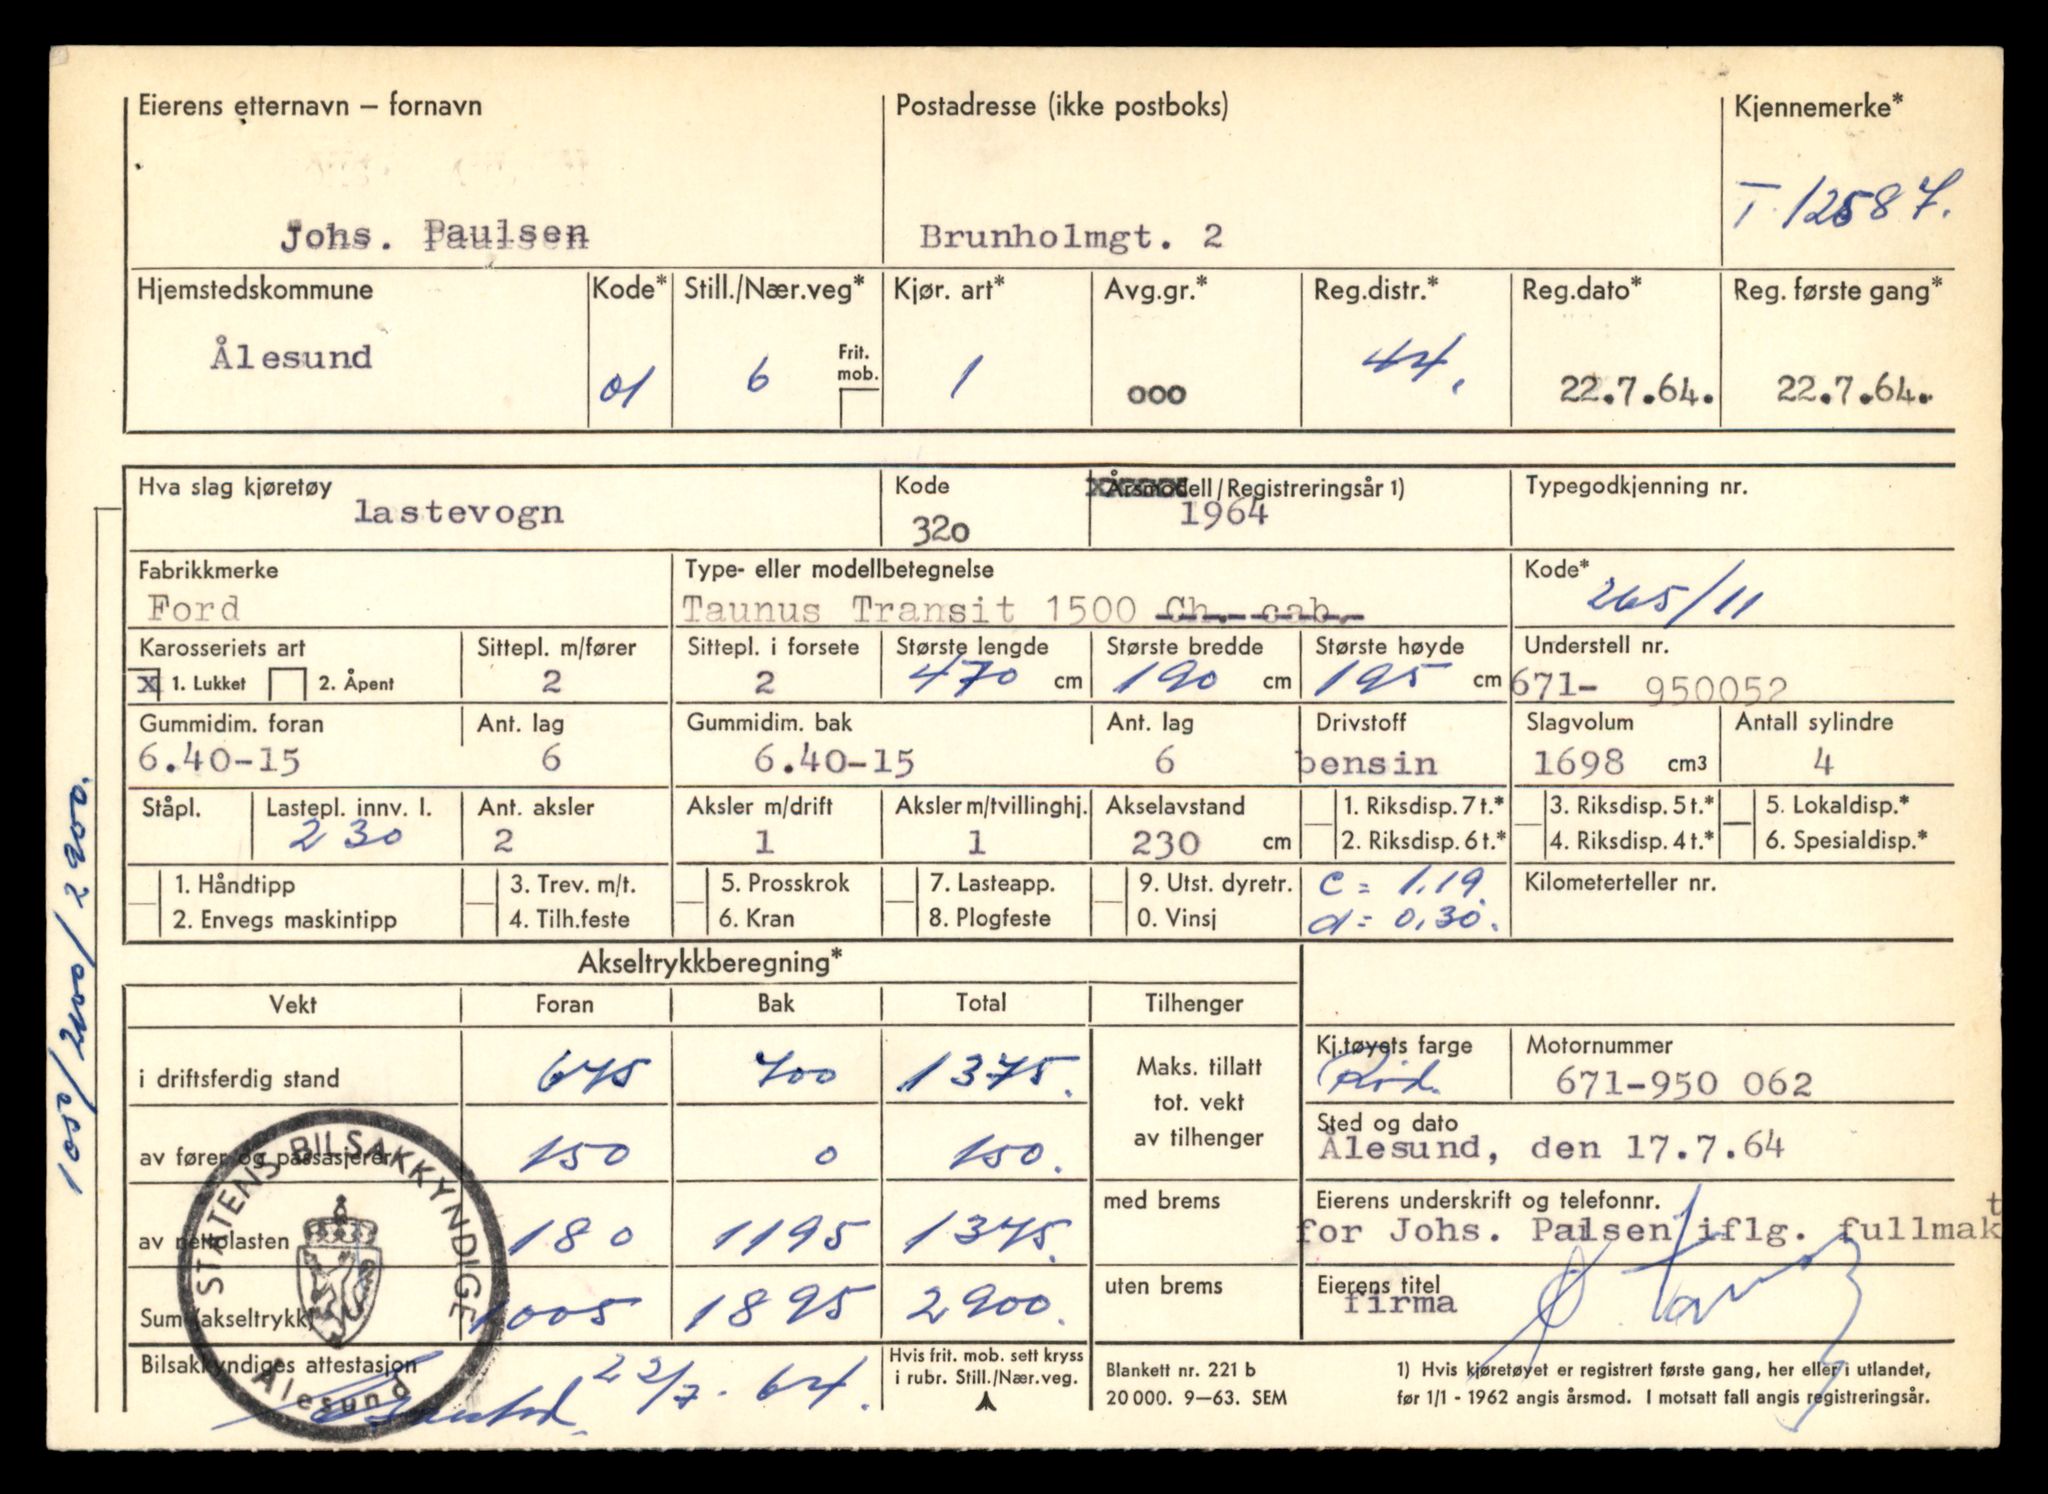 Eierens etternavn – fornavn
Postadresse (ikke postboks)
Kjennemerke*
Johs. Paulsen
Brunholmgt. 2
T-12587.
Hjemstedskommune
Kode*
Still./Nær.veg*
Kjør. art*
Avg.gr.*
Reg.distr.*
Reg.dato*
Reg. første gang*
Ålesund
01
6
Frit. mob.
1
000
44.
22.7.64.
22.7.64.
Hva slag kjøretøy
Kode
Årsmodell/Registreringsår 1)
Typegodkjenning nr.
lastevogn
320
1964
Fabrikkmerke
Type- eller modellbetegnelse
Kode*
Ford
Taunus Transit 1500 Ch. cab.
265/11
Karosseriets art
Sittepl. m/fører
Sittepl. i forsete
Største lengde
Største bredde
Største høyde
Understell nr.
X 1. Lukket
2. Åpent
2
2
470 cm
190 cm
195 cm
671- 950052
Gummidim. foran
Ant. lag
Gummidim. bak
Ant. lag
Drivstoff
Slagvolum
Antall sylindre
6.40-15
6
6.40-15
6
bensin
1698 cm3
4
Ståpl.
Lastepl. innv. l.
Ant. aksler
Aksler m/drift
Aksler m/tvillinghj.
Akselavstand
1. Riksdisp. 7 t.*
3. Riksdisp. 5 t.*
5. Lokaldisp.*
230
2
1
1
230 cm
2. Riksdisp. 6 t.*
4. Riksdisp. 4 t.*
6. Spesialdisp.*
1. Håndtipp
3. Trev. m/t.
5. Prosskrok
7. Lasteapp.
9. Utst. dyretr.
c = 1.19.
Kilometerteller nr.
2. Envegs maskintipp
4. Tilh.feste
6. Kran
8. Plogfeste
0. Vinsj
d = 0,30.
Akseltrykkberegning*
Vekt
Foran
Bak
Total
Tilhenger
i driftsferdig stand
675
700
1375.
Maks. tillatt
tot. vekt
av tilhenger
Kj.tøyets farge
Motornummer
Rød.
671-950 062
av fører og passasjerer
150
0
150.
Sted og dato
Ålesund, den 17.7.64
av nettolasten
180
1195
1375.
med brems
Eierens underskrift og telefonnr.
for Johs. Palsen iflg. fullmakt
Sum (akseltrykk)
1005
1895
2900.
uten brems
Eierens titel
firma
Bilsakkyndiges attestasjon
22/7-64.
Hvis frit. mob. sett kryss
i rubr. Still./Nær.veg.
Blankett nr. 221 b
20 000. 9–63. SEM
1) Hvis kjøretøyet er registrert første gang, her eller i utlandet,
før 1/1 - 1962 angis årsmod. I motsatt fall angis registreringsår.
STATENS BILSAKKYNDIGE
Ålesund
1050/2100/2900.